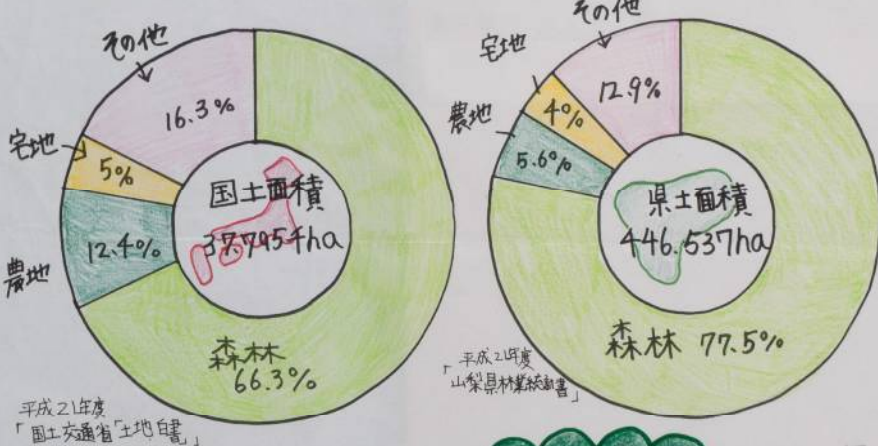 その他
16.3%
宅地
5%
農地
12.4%
国土面積
37.795千ha
森林
66.3%
平成21年度
「国土交通省「土地白書」
その他
12.9%
宅地
4%
農地
5.6%
県土面積
446.537ha
森林 77.5%
平成21年度
「山梨県林業統計書」